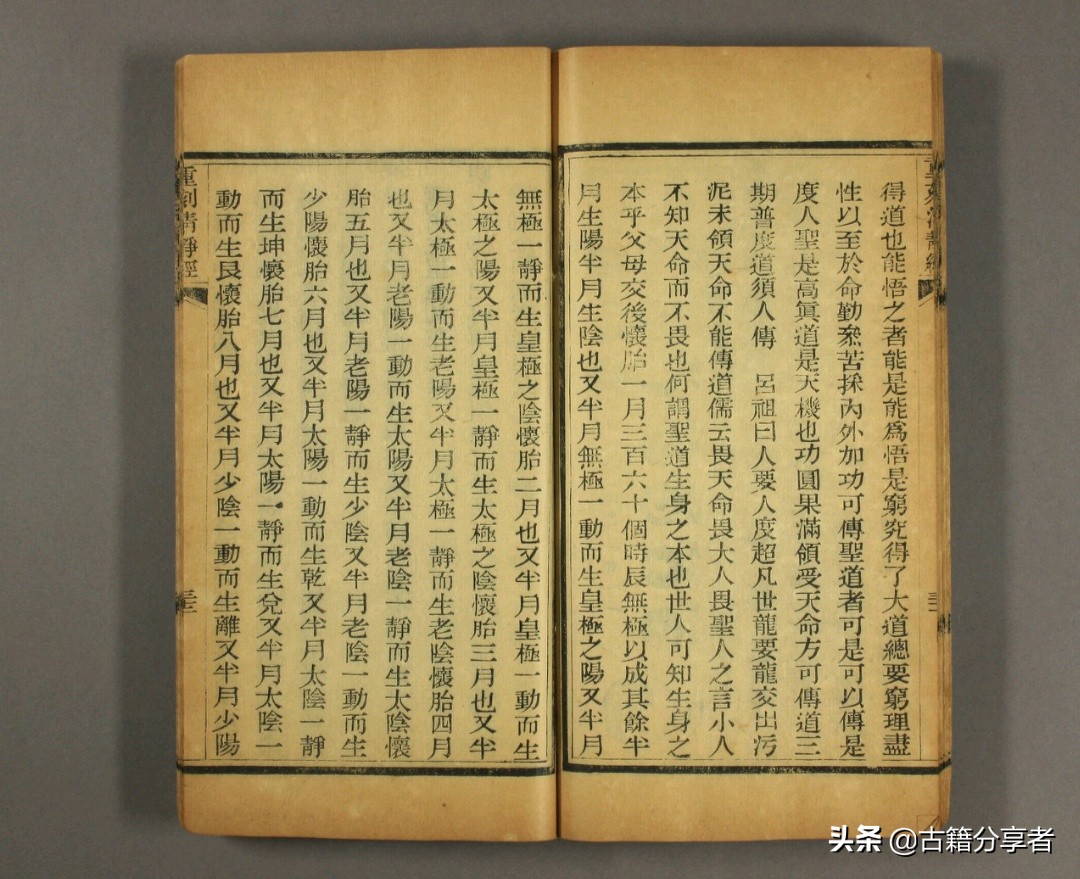 得道也能悟之者能是能爲悟是窮究得了大道總要窮理盡
性以至於命勤叅苦採內外加功可傳聖道者可是可以傳是
度人聖是高眞道是天機也功圓果滿領受天命方可傳道三
期普度道須人傳　呂祖曰人要人度超凡世龍要龍交出污
泥未領天命不能傳道儒云畏天命畏大人畏聖人之言小人
不知天命而不畏也何謂聖道生身之本也世人可知生身之
本乎父母交後懷胎一月三百六十個時辰無極以成其餘半
月生陽半月生陰也又半月無極一動而生皇極之陽又半月
無極一靜而生皇極之陰懷胎二月也又半月皇極一動而生
太極之陽又半月皇極一靜而生太極之陰懷胎三月也又半
月太極一動而生老陽又半月太極一靜而生老陰懷胎四月
也又半月老陽一動而生太陽又半月老陰一靜而生太陰懷
胎五月也又半月老陽一靜而生少陰又半月老陰一動而生
少陽懷胎六月也又半月太陽一動而生乾又半月太陰一靜
而生坤懷胎七月也又半月太陽一靜而生兌又半月太陰一
動而生艮懷胎八月也又半月少陰一動而生離又半月少陽
重刻清靜經
三二
头条 @古籍分享者